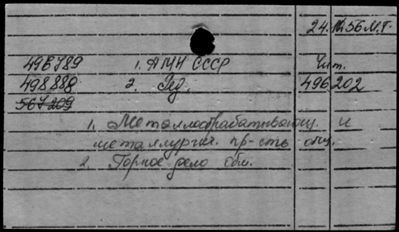 24.IV.56 М.Т.
498789 1. АМН СССР Чит.
498888 2. Ред. 496202
567209
1. Металлообрабатывающ. и
металлургич. пр-сть общ.
2. Горное дело общ.